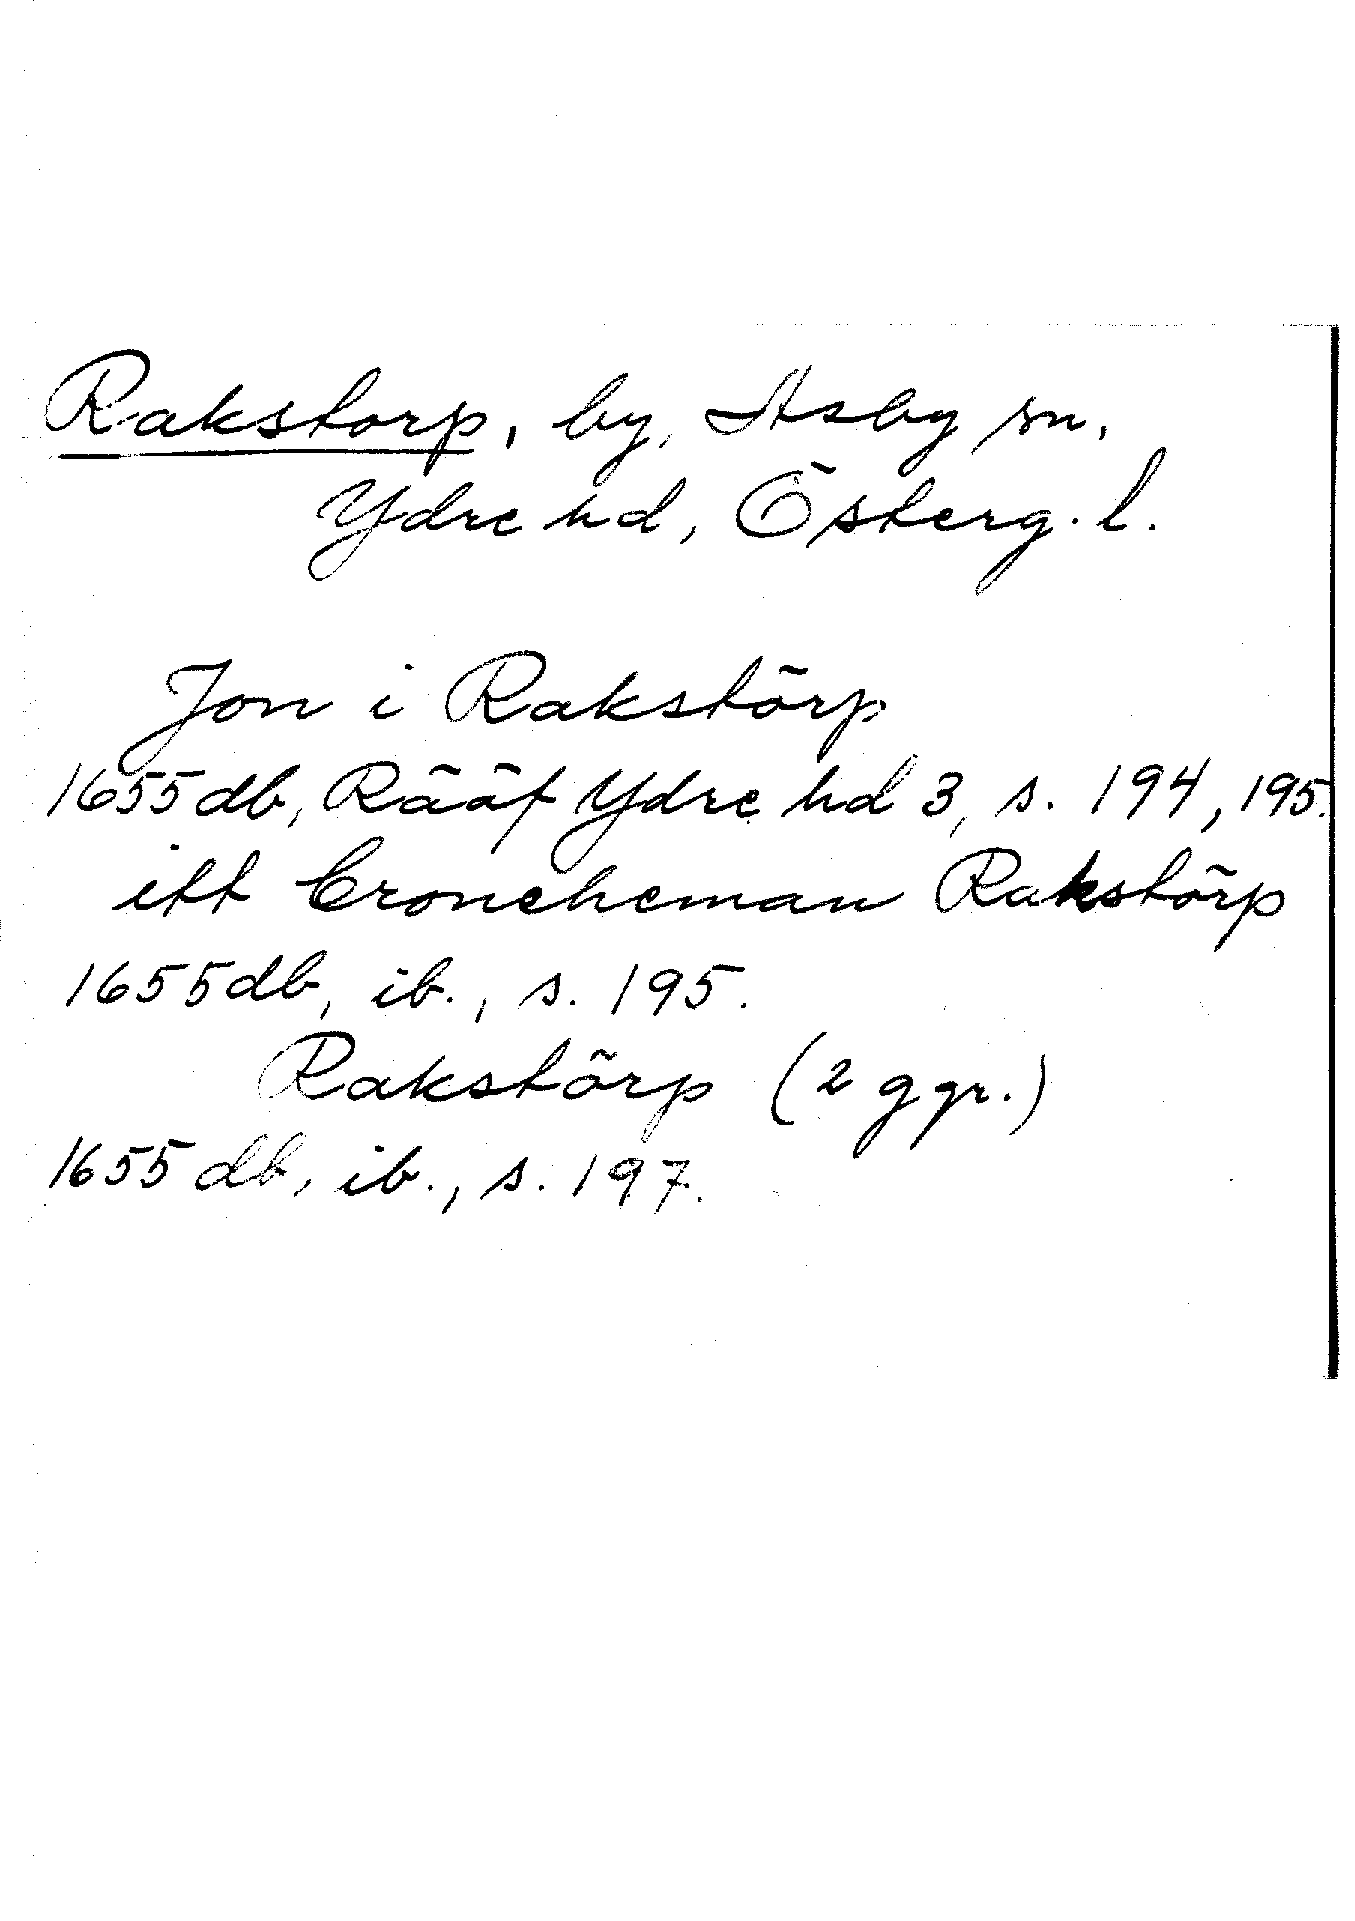 Rakstorp, by, Asby sn,
Ydre hd, Österg. l.
Jon i Rakstörp
1655 db, Rääf Ydre hd 3, s. 194, 195.
itt Croneheman Rakstörp
1655 db, ib., s. 195.
Rakstörp (2 ggr.)
1655 db, ib., s. 197.